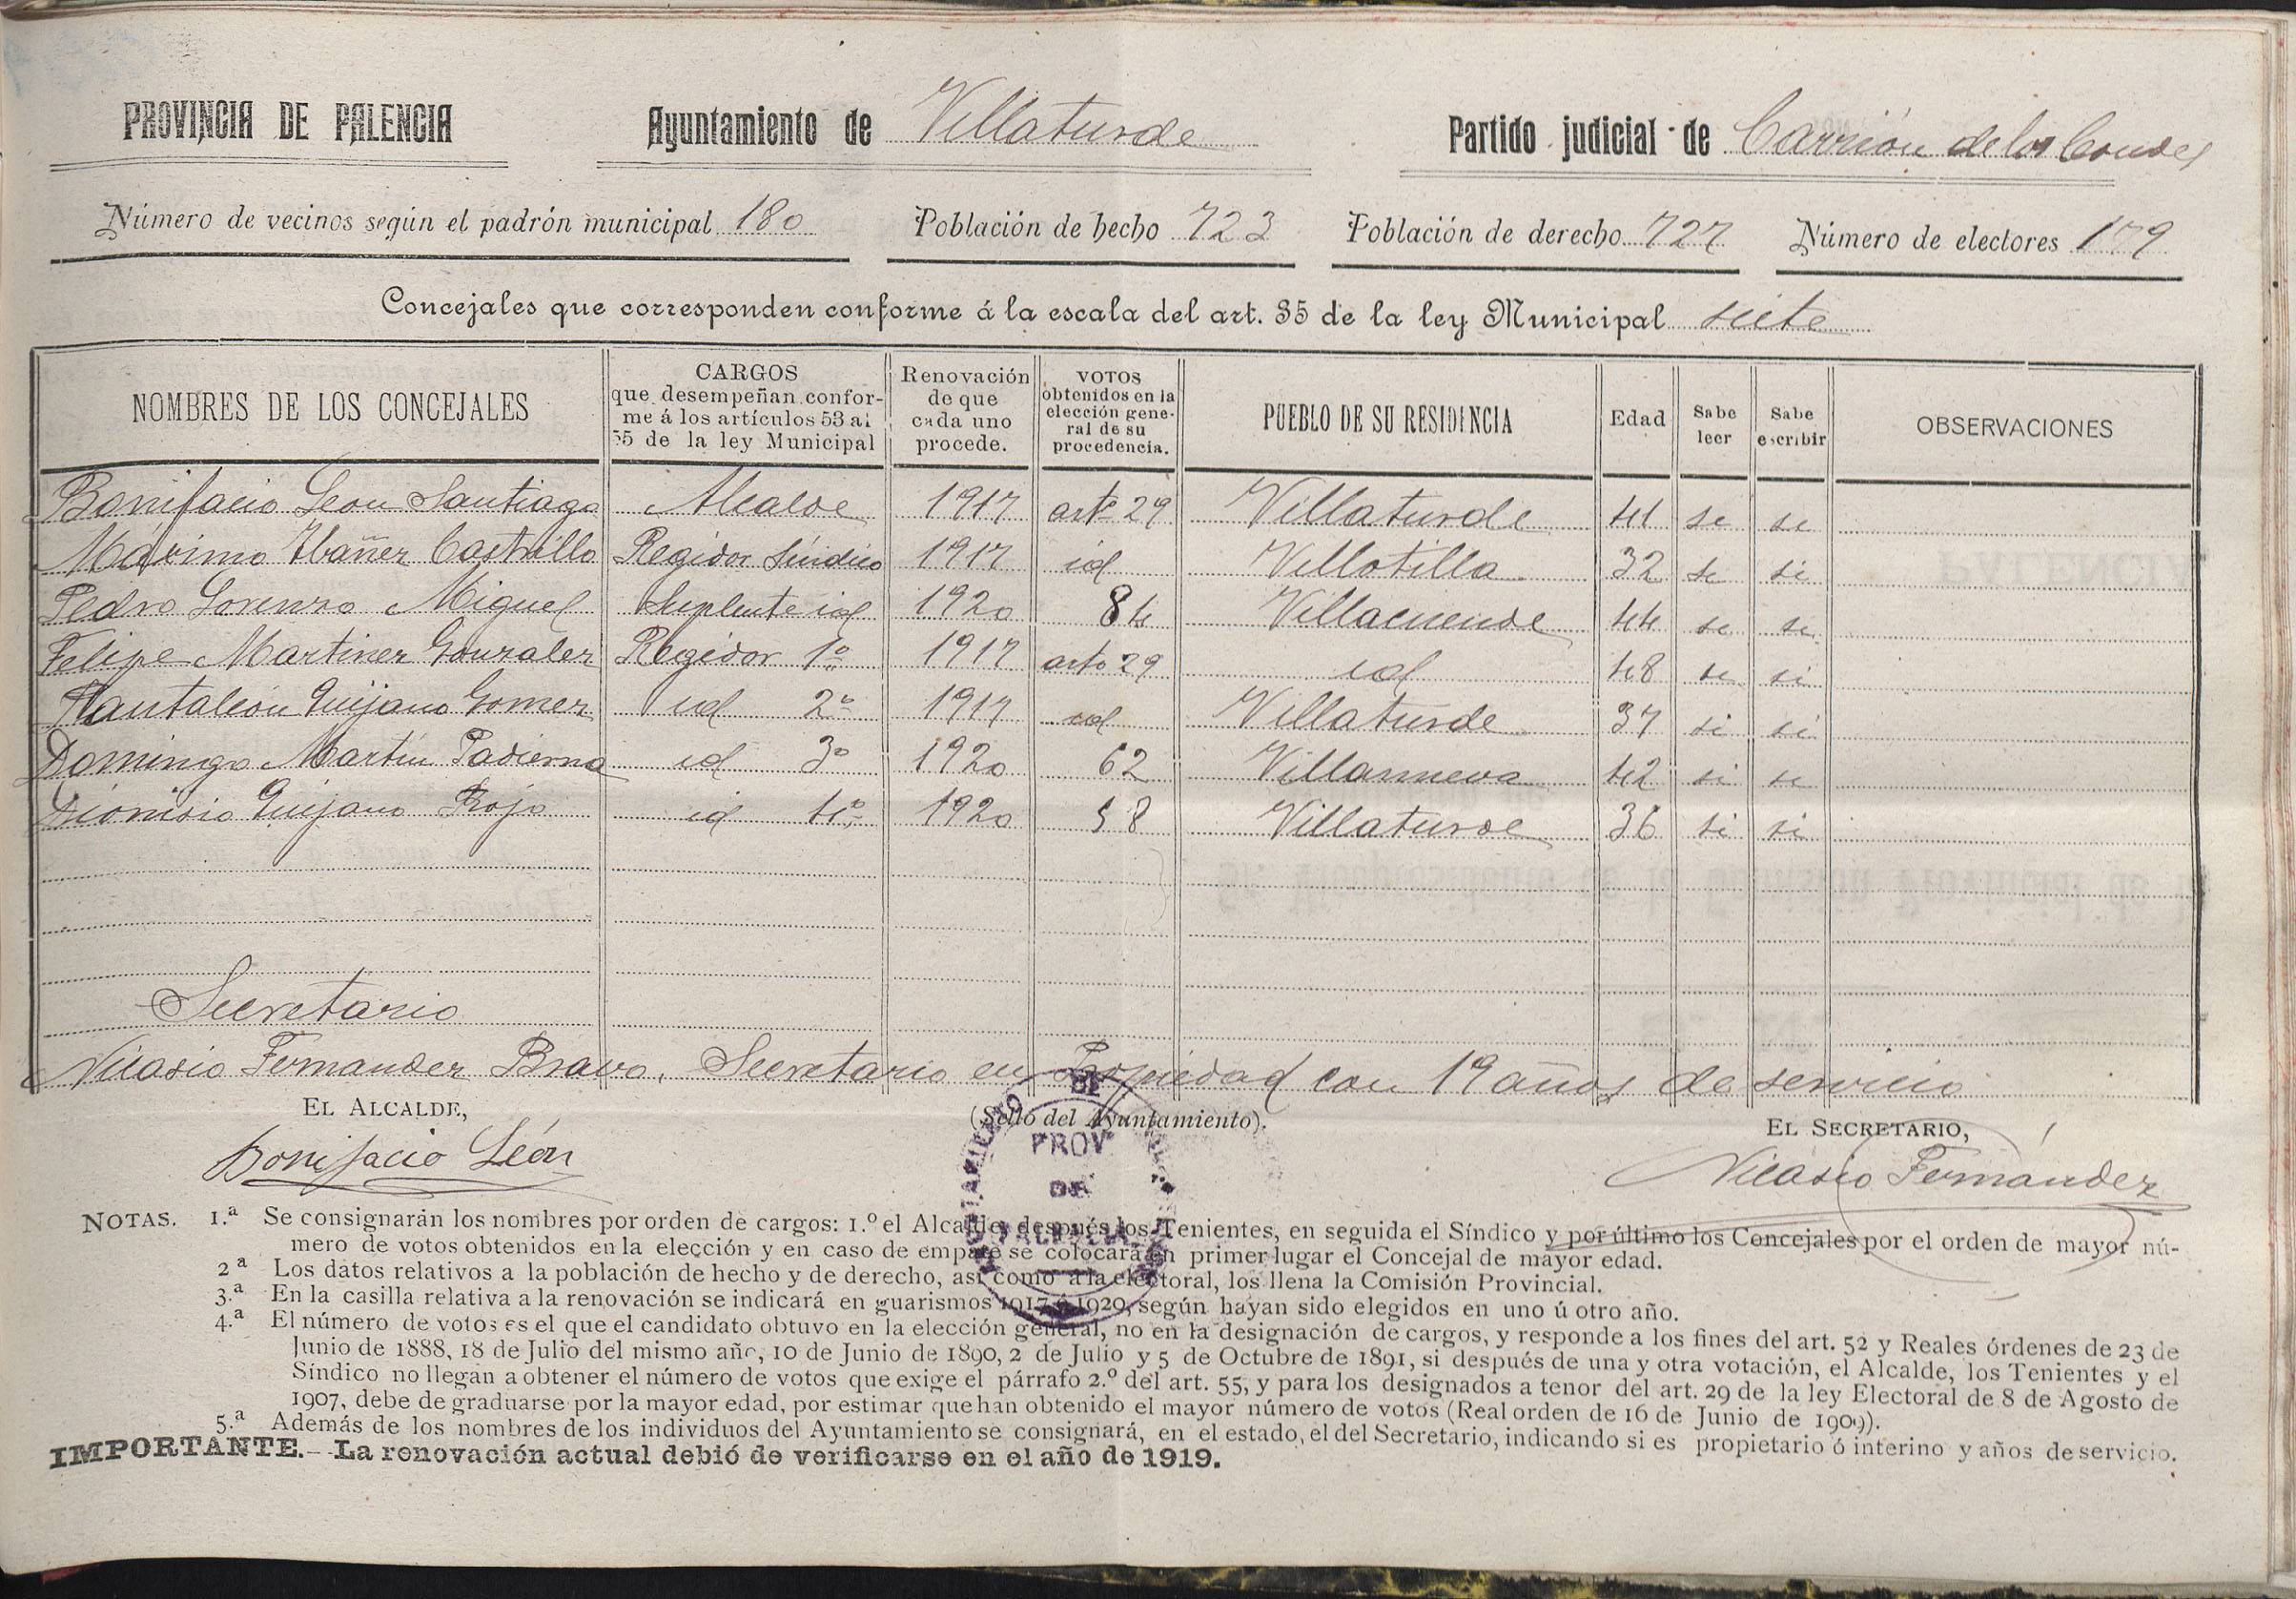 PROVINCIA DE PALENCIA Ayuntamiento de Villaturde Partido judicial de Carrión de los Condes
Número de vecinos según el padrón municipal 180 Población de hecho 723 Población de derecho 727 Número de electores 179
Concejales que corresponden conforme á la escala del art. 35 de la ley Municipal siete
NOMBRES DE LOS CONCEJALES
CARGOS
que desempeñan confor-
me á los artículos 53 al
55 de la ley Municipal
Renovación
de que
cada uno
procede.
VOTOS
obtenidos en la
elección gene-
ral de su
procedencia.
PUEBLO DE SU RESIDENCIA
Edad
Sabe
leer
Sabe
escribir
OBSERVACIONES
Bonifacio Leon Santiago Alcalde 1917 artº 29 Villaturde 41 si si
Máximo Ibañez Castrillo Regidor Síndico 1917 id Villotilla 32 si si
Pedro Lorenzo Miguel Suplente id 1920 84 Villacuende 44 si si
Felipe Martinez Gonzalez Regidor 1º 1917 arto 29 id 48 si si
Pantaleón Quijano Gomez id 2º 1917 id Villaturde 37 si si
Domingo Martín Padierna id 3º 1920 62 Villanueva 42 si si
Dionisio Quijano Rojo id 4º 1920 58 Villaturde 36 si si
Secretario
Nicasio Fernandez Bravo, Secretario en Propiedad con 19 años de servicio
EL ALCALDE,
(Sello del Ayuntamiento).
EL SECRETARIO,
Bonifacio León
Nicasio Fernández
PROV
DE
NOTAS. 1.ª Se consignarán los nombres por orden de cargos: 1.º el Alcalde, después los Tenientes, en seguida el Síndico y por último los Concejales por el orden de mayor nú-
mero de votos obtenidos en la elección y en caso de empate se colocará en primer lugar el Concejal de mayor edad.
2ª Los datos relativos a la población de hecho y de derecho, así como a la electoral, los llena la Comisión Provincial.
3.ª En la casilla relativa a la renovación se indicará en guarismos 1917 ó 1920, según hayan sido elegidos en uno ú otro año.
4.ª El número de votos es el que el candidato obtuvo en la elección general, no en la designación de cargos, y responde a los fines del art. 52 y Reales órdenes de 23 de
Junio de 1888, 18 de Julio del mismo año, 10 de Junio de 1890, 2 de Julio y 5 de Octubre de 1891, si después de una y otra votación, el Alcalde, los Tenientes y el
Síndico no llegan a obtener el número de votos que exige el párrafo 2.º del art. 55, y para los designados a tenor del art. 29 de la ley Electoral de 8 de Agosto de
1907, debe de graduarse por la mayor edad, por estimar que han obtenido el mayor número de votos (Real orden de 16 de Junio de 1909).
5.ª Además de los nombres de los individuos del Ayuntamiento se consignará, en el estado, el del Secretario, indicando si es propietario ó interino y años de servicio.
IMPORTANTE.—La renovación actual debió de verificarse en el año de 1919.